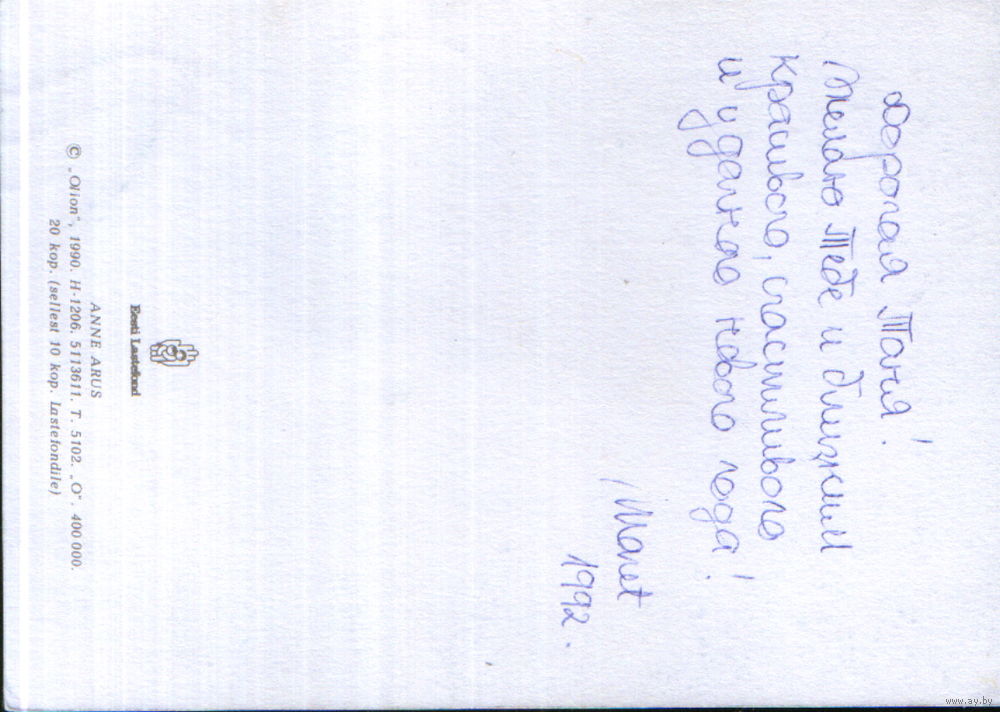 Дорогая Таня!
Желаю Тебе и близким
красивого, счастливого
и удачного нового года!
Maret
1992.
Eesti Lastefond
ANNE ARUS
© „Olion“, 1990. H-1206. 5113611. T. 5102. „O“. 400 000.
20 kop. (sellest 10 kop. Lastefondile)
www.ay.by